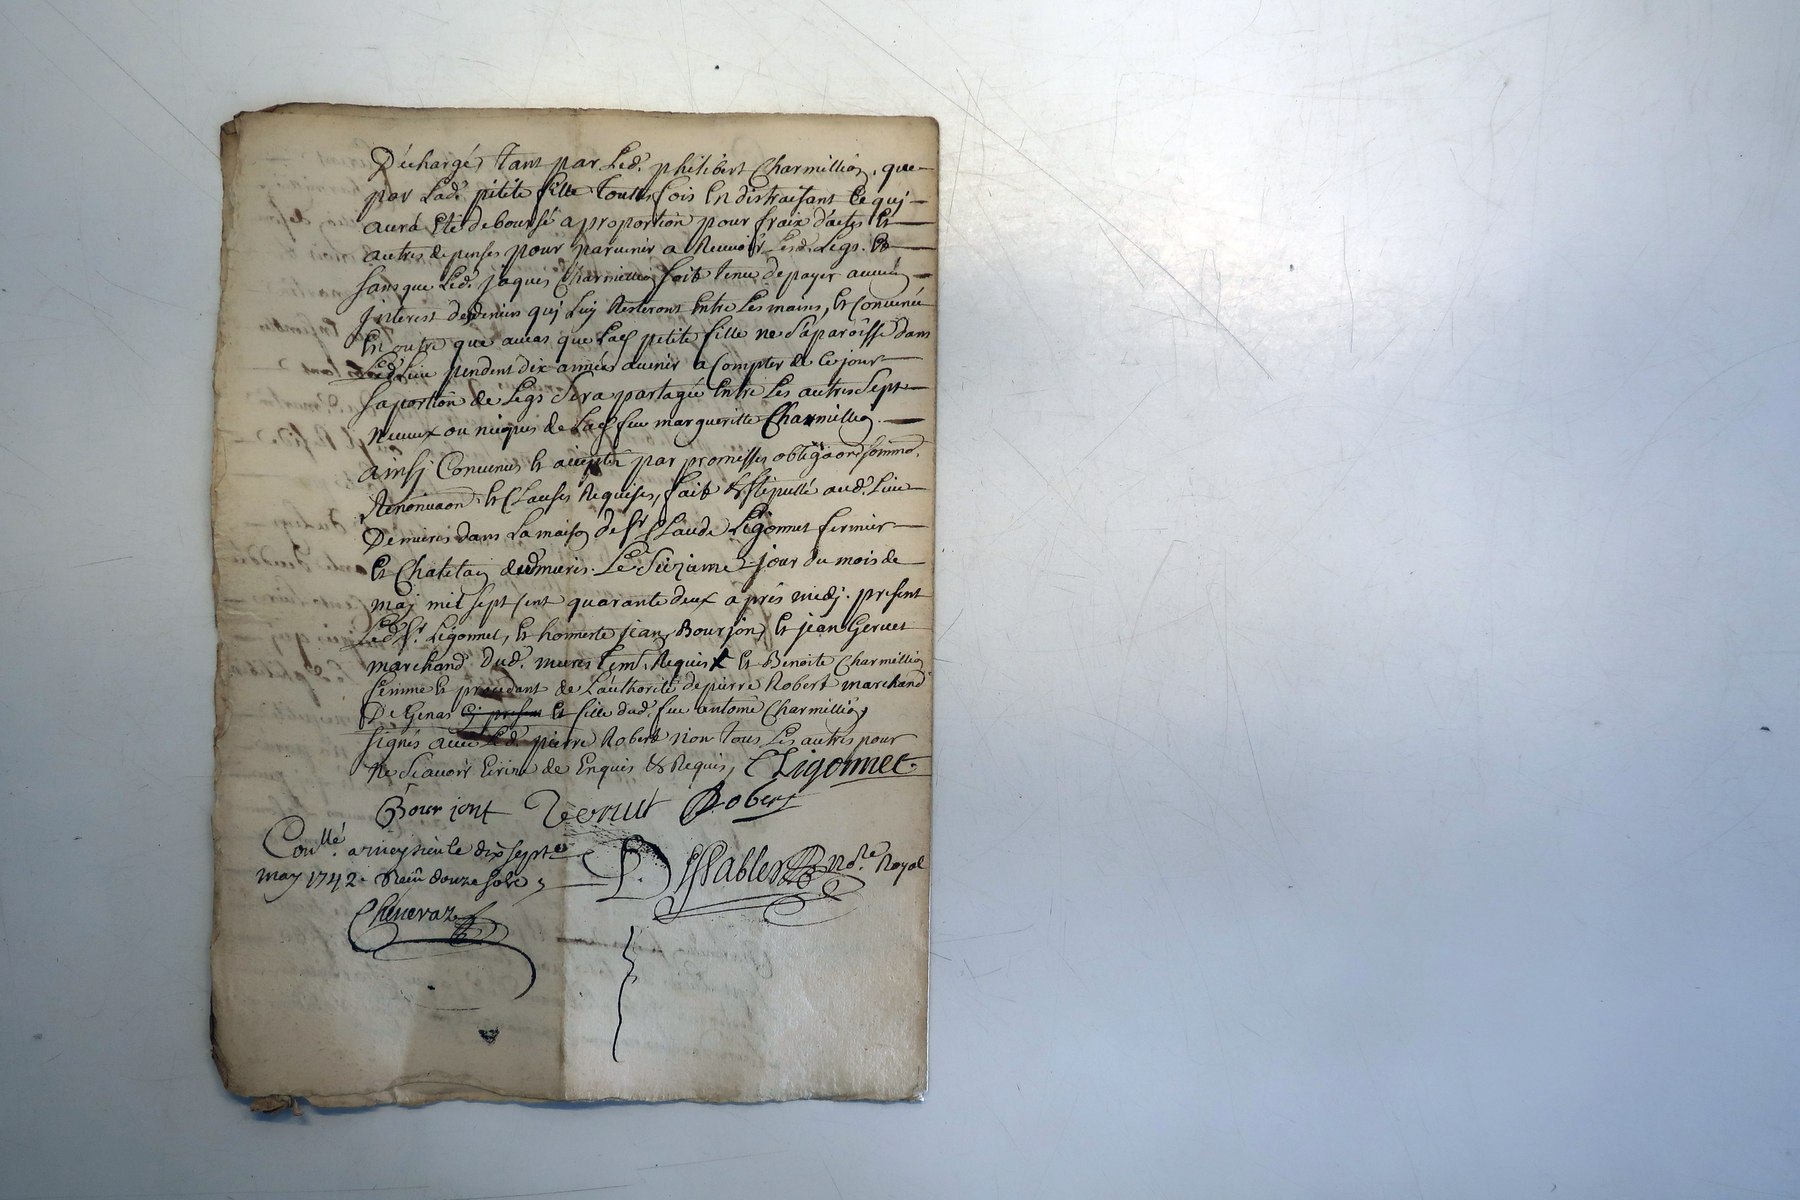 Déchargés tant par Led. philibert Charmillion, que
par Lad. pitite fille toutes fois En distraisant Ce quj
aura Eté deboursé a proportion pour fraix d'actes Et
autres depenses pour paruenir a Receuoir Lesd. Legs. Et
sans que Led. jaques Charmillion soit tenu de payer aucun
jnterest desdeniers quj Luy Resteront Entre Les mains, Et Conuenu
En outre que aucas que Lad petite fille ne S'aparoisse dans
Led. Lieu pendent dix années auenir a Compter de Ce jour
Sa portion de Legs Sera partagée Entre Les autres Sept
Neueux ou niepces de Lad feue margueritte Charmillion.
ainsj Conuenus Et accepté par promesses obligaon soummo.
Renonciaon, Et Clauses Requises, fait & stipullé aud. Lieu
De mieres dans La maison de Sr Claude Ligonnet fermier
Et Chatelain dud mieres. Le Sizieme jour du mois de
maj mil sept sent quarante deux apres midj. présent
Led. Sr. Ligonnet, Et honneste jean Bourjon, Et jean Geruet
marchand dud. mieres tem. Requis Et Benoite Charmillion
femme Et procédant de L'authorité de pierre Robert marchand
De Genas Et fille dud. feu antoine Charmillion,
signés auec Led. pierre Robert non tous Les autres pour
Ne Scauoir Ecrire de Enquis & Requis, CLigonnet.
Bourjont Geruet Robert
Conllé. a meysieu le dix sept
may 1742. Receu douze sols
Nore. Royal
Chenevaz